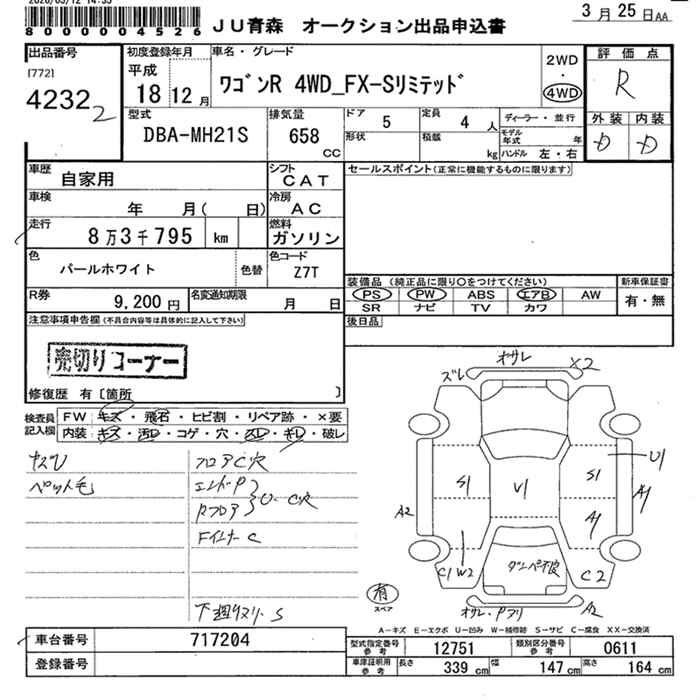 2020/03/12 14:35
8000004526
JU青森 オークション出品申込書
3月25日AA
出品番号
[772]
4232 2
初度登録年月
平成
18 12月
車名・グレード
ワゴンR 4WD_FX-Sリミテッド
2WD
・
4WD
評価点
R
型式
DBA-MH21S
排気量
658
cc
ドア
5
定員
4 人
形状
積載
kg
ディーラー・並行
モデル年式 年
ハンドル 左・右
外装 内装
D D
車歴
自家用
シフト
CAT
セールスポイント(正常に機能するものに限ります)
車検
年 月( 日)
冷房
AC
走行
8万3千795 km
燃料
ガソリン
色
パールホワイト
色替
色コード
Z7T
装備品 (純正品に限り○をつけてください)
PS PW ABS エアB AW
SR ナビ TV カワ
新車保証書
有・無
R券
9,200円
名変通知期限
月 日
後日品
注意事項申告欄(不具合内容等は具体的に記入して下さい)
売切りコーナー
修復歴 有〔箇所 〕
検査員記入欄
FW キズ・飛石・ヒビ割・リペア跡・×要
内装 キズ・汚レ・コゲ・穴・スレ・キレ・破レ
ペット毛
フロアC穴
エンドP
Rフロア
U・C穴
Fインナー C
下廻りスリ・S
ズレ
オサレ
X2
U1
S1
V1
S1
A1
A1
A2
C1 W2
ダンパー不良
C2
有
スペア
A2
A-キズ E-エクボ U-凹み W-補修跡 S-サビ C-腐食 XX-交換済
車台番号
717204
登録番号
型式指定番号
参考
12751
類別区分番号
参考
0611
車庫証明用
参考
長さ
339 cm
幅
147 cm
高さ
164 cm